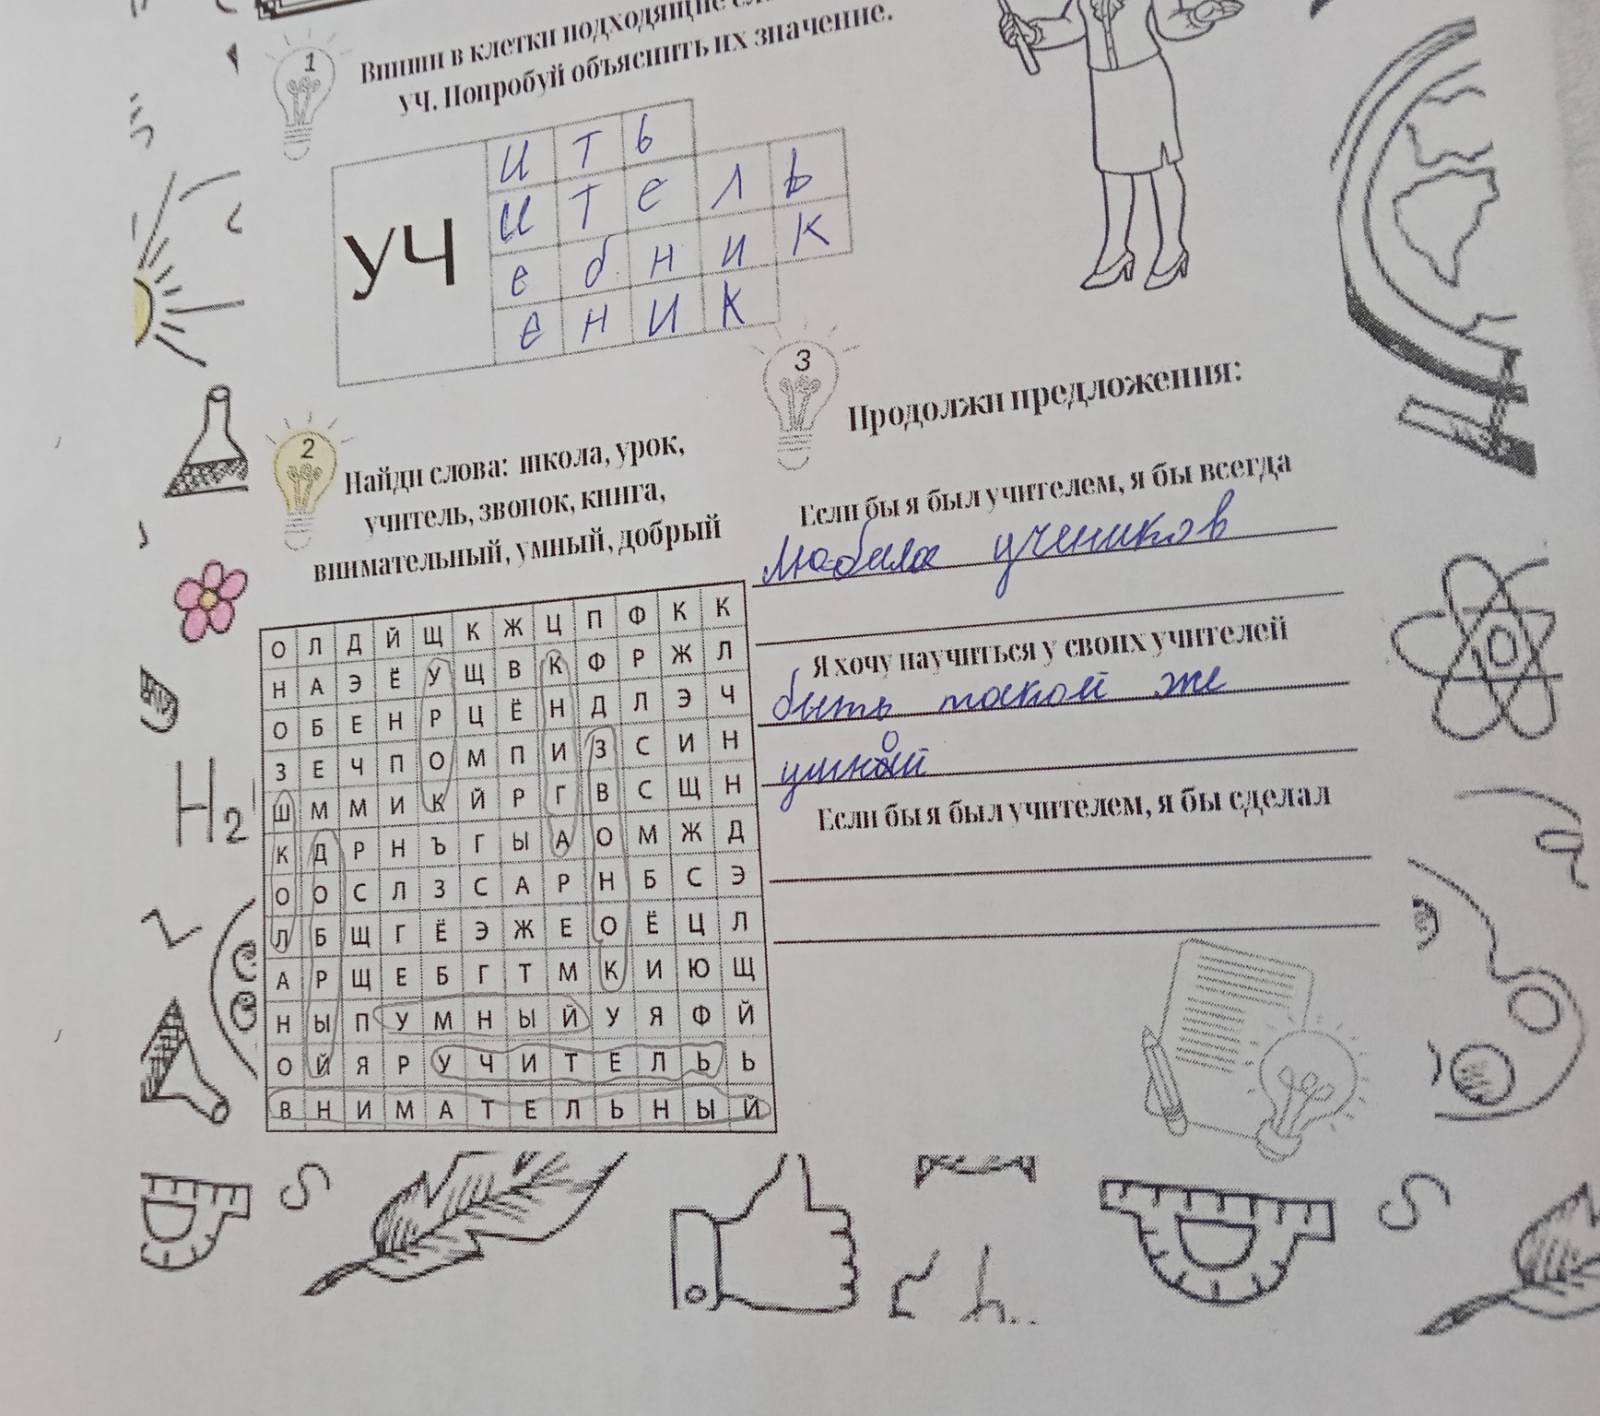 1
Впиши в клетки подходящие
УЧ. Попробуй объяснить их значение.
УЧ
и т ь
и т е л ь
е б н и к
е н и к
2
Найди слова: школа, урок,
учитель, звонок, книга,
внимательный, умный, добрый
О Л Д Й Щ К Ж Ц П Ф К К
Н А Э Ё У Щ В К Ф Р Ж Л
О Б Е Н Р Ц Ё Н Д Л Э Ч
З Е Ч П О М П И З С И Н
Ш М М И К Й Р Г В С Щ Н
К Д Р Н Ъ Г Ы А О М Ж Д
О О С Л З С А Р Н Б С Э
Л Б Щ Г Ё Э Ж Е О Ё Ц Л
А Р Щ Е Б Г Т М К И Ю Щ
Н Ы П У М Н Ы Й У Я Ф Й
О Й Я Р У Ч И Т Е Л Ь Ь
В Н И М А Т Е Л Ь Н Ы Й
3
Продолжи предложения:
Если бы я был учителем, я бы всегда
любила учеников
Я хочу научиться у своих учителей
быть такой же
умной
Если бы я был учителем, я бы сделал
H2